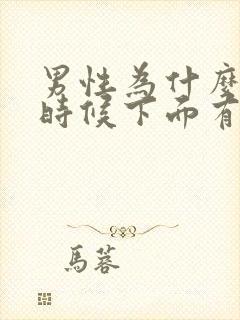 男性為什麼
時候下面有
馬蓉